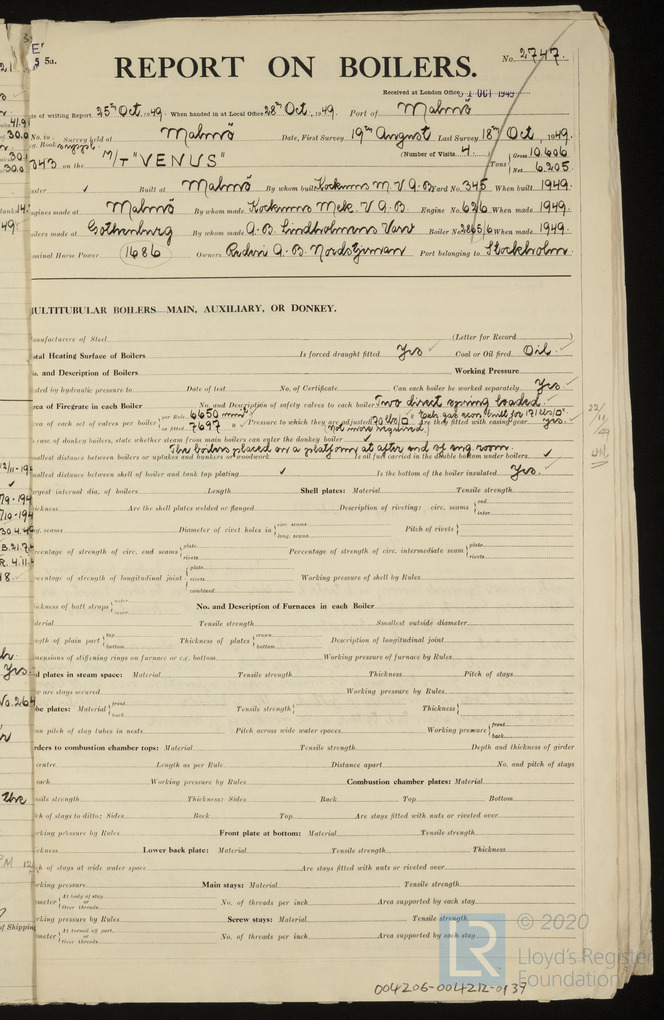 5a.
REPORT ON BOILERS.
No. 2747.
Received at London Office 31 OCT 1949
te of writing Report 25th Oct. 1949. When handed in at Local Office 28th Oct. 1949. Port of Malmö
No. in Survey held at Malmö Date, First Survey 19th August Last Survey 18th Oct. 1949.
g. Book suppl. (Number of Visits 4.)
343 on the M/T "VENUS" Tons { Gross 10.606
Net 6.205.
aster ✓ Built at Malmö By whom built Kockums M.V. A.B. Yard No. 345 When built 1949.
ngines made at Malmö By whom made Kockums Mek. V. A-B Engine No. 626 When made 1949.
oilers made at Gothenburg By whom made A-B. Lindholmens Varv Boiler No. 2865/6 When made 1949.
ominal Horse Power 1686 Owners Rederi A-B. Nordstjernan Port belonging to Stockholm.
MULTITUBULAR BOILERS MAIN, AUXILIARY, OR DONKEY.
anufacturers of Steel (Letter for Record )
otal Heating Surface of Boilers Is forced draught fitted Yes ✓ Coal or Oil fired Oil. ✓
o. and Description of Boilers Working Pressure
ested by hydraulic pressure to Date of test No. of Certificate Can each boiler be worked separately Yes. ✓
rea of Firegrate in each Boiler No. and Description of safety valves to each boiler Two direct spring loaded.
rea of each set of valves per boiler { per Rule 6650 mm²
as fitted 7697 " ✓ Pressure to which they are adjusted 170 lbs/□" Are they fitted with easing gear Yes. ✓
(not more required.)
case of donkey boilers, state whether steam from main boilers can enter the donkey boiler ✓
The boilers placed on a platform at after end of eng. room.
mallest distance between boilers or uptakes and bunkers or woodwork Is oil fuel carried in the double bottom under boilers ✓
mallest distance between shell of boiler and tank top plating ✓ Is the bottom of the boiler insulated Yes. ✓
argest internal dia. of boilers Length Shell plates: Material Tensile strength
hickness Are the shell plates welded or flanged Description of riveting: circ. seams { end
inter.
ng. seams Diameter of rivet holes in { circ. seams
long. seams Pitch of rivets {
ercentage of strength of circ. end seams { plate
rivets Percentage of strength of circ. intermediate seam { plate
rivets
ercentage of strength of longitudinal joint { plate
rivets
combined Working pressure of shell by Rules
hickness of butt straps { outer
inner No. and Description of Furnaces in each Boiler
aterial Tensile strength Smallest outside diameter
ength of plain part { top
bottom Thickness of plates { crown
bottom Description of longitudinal joint
mensions of stiffening rings on furnace or c.c. bottom Working pressure of furnace by Rules
d plates in steam space: Material Tensile strength Thickness Pitch of stays
w are stays secured Working pressure by Rules
be plates: Material { front
back Tensile strength { Thickness {
an pitch of stay tubes in nests Pitch across wide water spaces Working pressure { front
back
rders to combustion chamber tops: Material Tensile strength Depth and thickness of girder
centre Length as per Rule Distance apart No. and pitch of stays
each Working pressure by Rules Combustion chamber plates: Material
nsile strength Thickness: Sides Back Top Bottom
tch of stays to ditto: Sides Back Top Are stays fitted with nuts or riveted over
rking pressure by Rules Front plate at bottom: Material Tensile strength
ickness Lower back plate: Material Tensile strength Thickness
ch of stays at wide water space Are stays fitted with nuts or riveted over
rking pressure Main stays: Material Tensile strength
meter { At body of stay
or
Over threads No. of threads per inch Area supported by each stay
rking pressure by Rules Screw stays: Material Tensile strength
meter { At turned off part
or
Over threads No. of threads per inch Area supported by each stay
22/11/49
LR
© 2020
Lloyd's Register
Foundation
004206-004212-0137